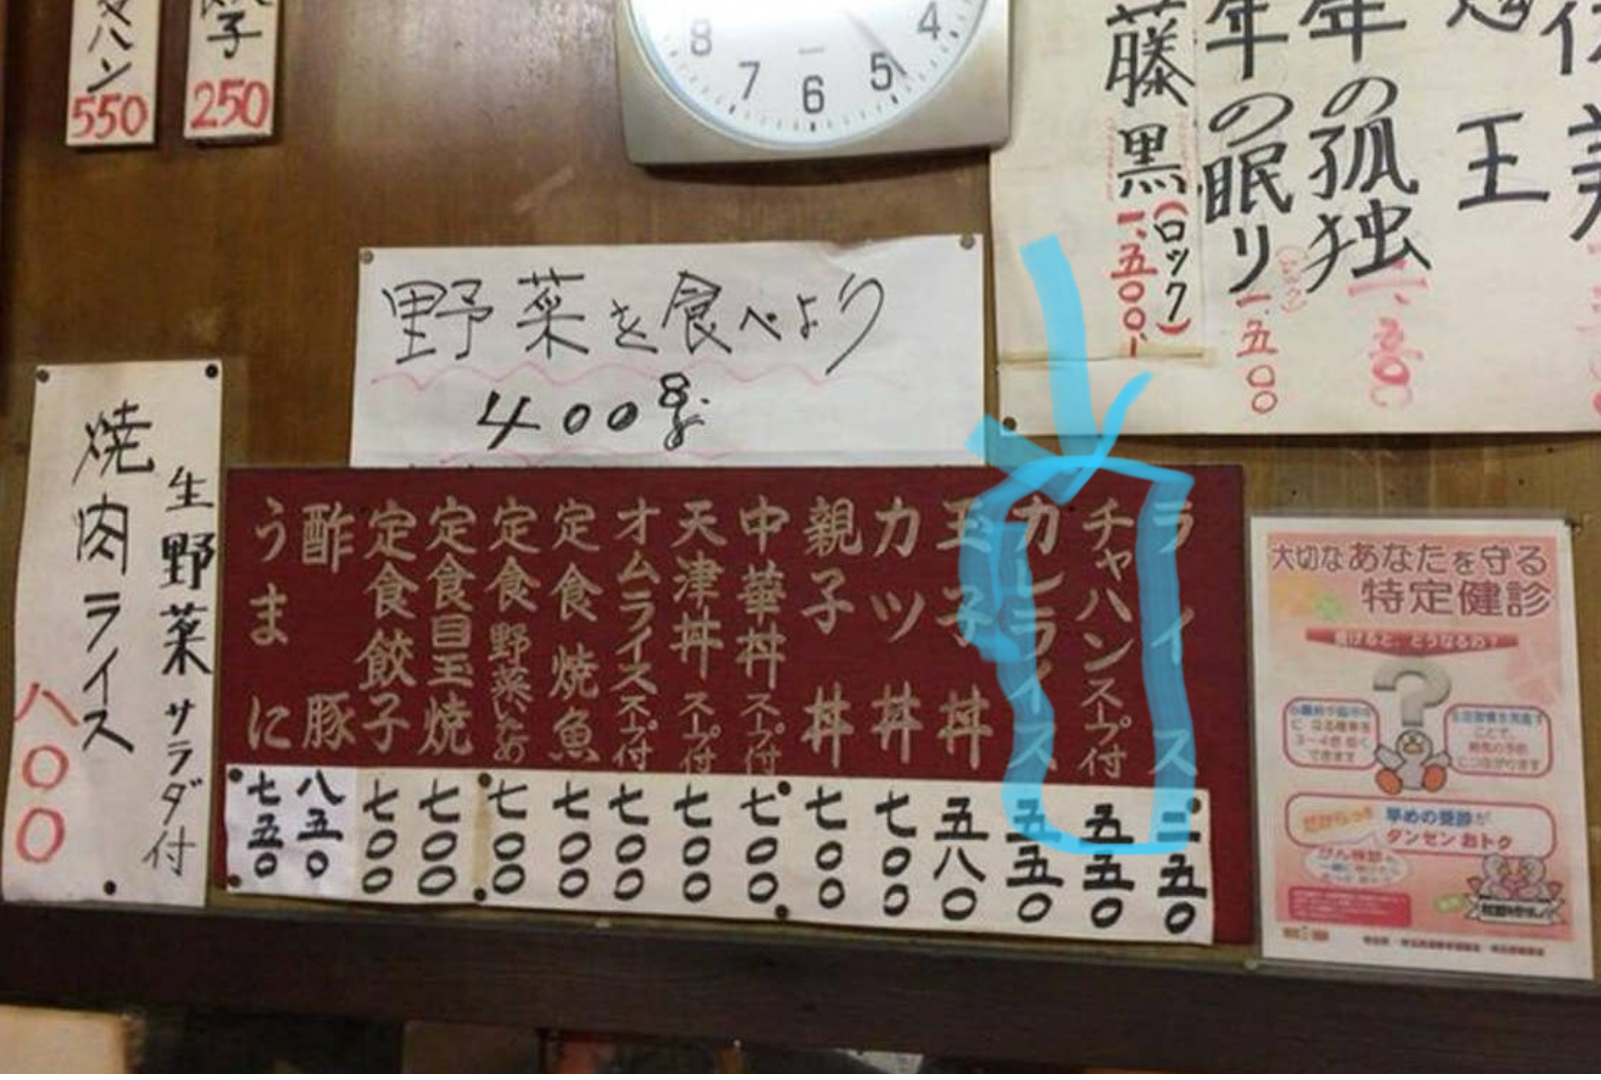 ハン
550
子
250
8
7
6
5
4
藤黒
(ロック)
一、五〇〇
年の眠り
一、五〇〇
年の孤独
王
野菜を食べよう
400g
焼肉ライス
生野菜サラダ付
八〇〇
ライス
三五〇
チャハンスープ付
五五〇
カレライス
五五〇
玉子丼
五八〇
カツ丼
七〇〇
親子丼
七〇〇
中華丼スープ付
七〇〇
天津丼スープ付
七〇〇
オムライススープ付
七〇〇
定食焼魚
七〇〇
定食野菜いため
七〇〇
定食目玉焼
七〇〇
定食餃子
七〇〇
酢豚
八五〇
うまに
七五〇
大切なあなたを守る
特定健診
?
早めの受診が
ダンセンおトク